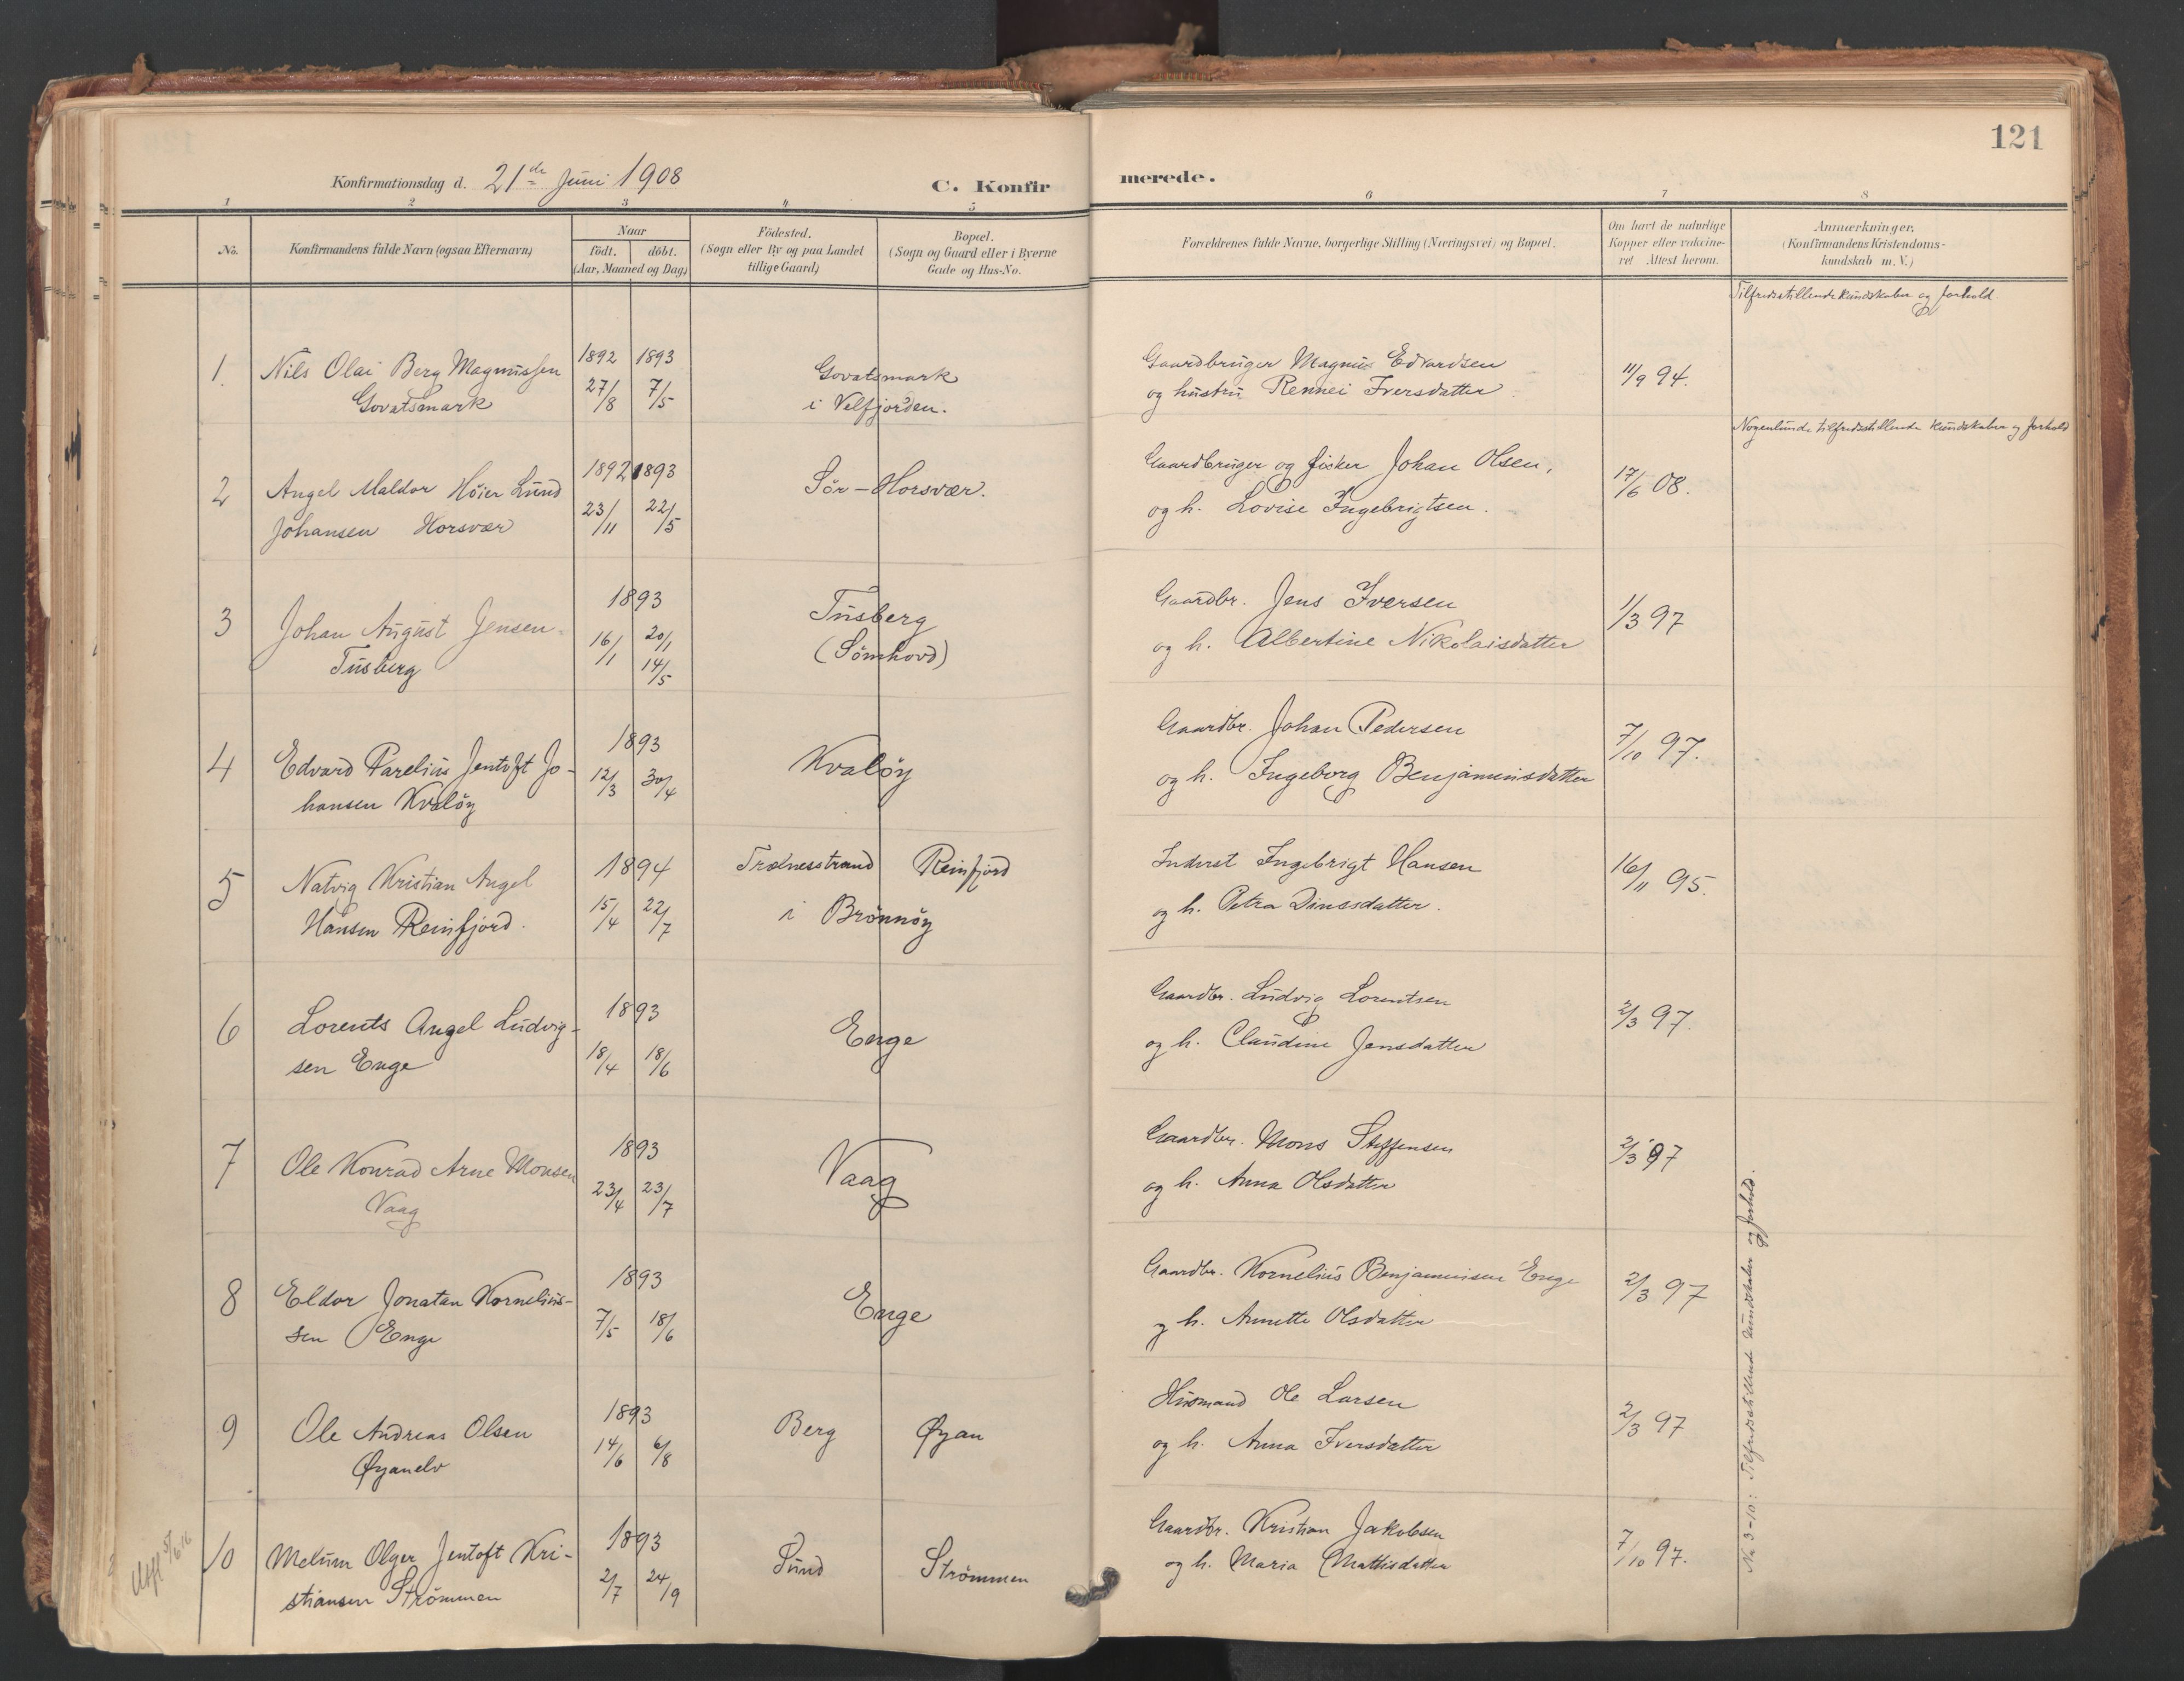 121
Konfirmationsdag d. 21de Juni 1908
C. Konfirmerede.
1 2 3 4 5 6 7 8
No.
Konfirmandens fulde Navn (ogsaa Efternavn)
Naar
födt. döbt.
(Aar, Maaned og Dag)
Födested.
(Sogn eller By og paa Landet
tillige Gaard)
Bopæl.
(Sogn og Gaard eller i Byerne
Gade og Hus-No.
Forældrenes fulde Navne, borgerlige Stilling (Næringsvei) og Bopæl.
Om havt de naturlige
Kopper eller vakcine-
ret. Attest herom.
Anmærkninger,
(Konfirmandens Kristendoms-
kundskab m. V.)
Tilfredsstillende kundskaber og forhold.
1. Nils Olai Berg Magnussen 1892 1893 Govatsmark Gaardbruger Magnus Edvardsen 11/9 94.
Govatsmark 27/8 7/5 i Velfjorden. og hustru Rennei Iversdatter
Nogenlunde tilfredsstillende kundskaber og forhold
2 Angel Maldor Höier Lund 1892 1893 Sör-Horsvær. Gaardbruger og fisker Johan Olsen, 17/6 08.
Johansen Horsvær 23/11 22/5 og h. Lovise Ingebrigtsen.
3 Johan August Jensen 1893 Tusberg Gaardbr. Jens Iversen 1/3 97
Tusberg 16/1 20/1 14/5 (Sömhovd) og h. Albertine Nikolaisdatter
4 Edvard Parelius Jentoft Jo- 1893 Kvalöy Gaardbr. Johan Pedersen 7/10 97.
hansen Kvalöy 12/3 30/4 og h. Ingeborg Benjaminsdatter
5 Natvig Kristian Angel 1894 Trælnesstrand Reinfjord Inderst Ingebrigt Hansen 16/11 95.
Hansen Reinfjord. 15/4 22/7 i Brönnöy og h. Petra Dinesdatter.
6 Lorents Angel Ludvig- 1893 Enge Gaardbr. Ludvig Lorentsen 2/3 97.
sen Enge 18/4 18/6 og h. Claudine Jensdatter
7 Ole Konrad Arne Monsen 1893 Vaag Gaardbr. Mons Steffensen 2/3 97
Vaag 23/4 23/7 og h. Anna Olsdatter
8 Eldor Jonatan Kornelius- 1893 Enge Gaardbr. Kornelius Benjaminsen Enge 2/3 97
sen Enge 7/5 18/6 og h. Annette Olsdatter
9 Ole Andreas Olsen 1893 Berg Øyan Husmand Ole Larsen 2/3 97
Øyanelv 14/6 6/8 og h. Anna Iversdatter
10 Melum Olger Jentoft Kri- 1893 Sund Strömmen Gaardbr. Kristian Jakobsen 7/10 97.
stiansen Strömmen 2/7 24/9 og h. Maria Mattisdatter
No 3-10: Tilfredsstillende kundskaber og forhold.
5/6 16